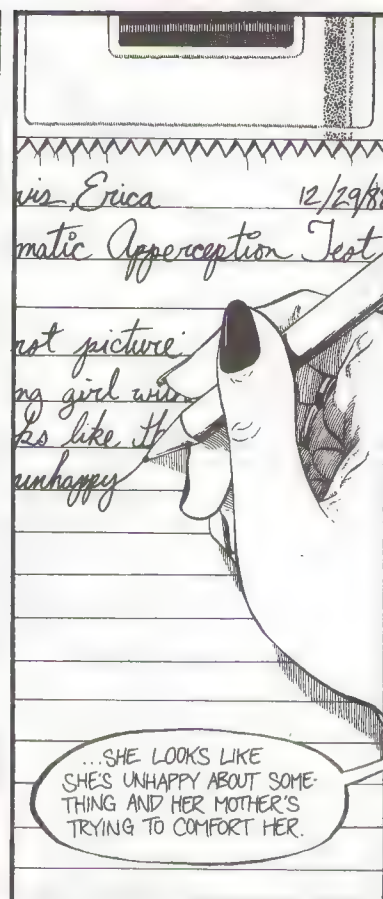 vis, Erica 12/29/88
matic Apperception Test
rst picture
ng girl with
ks like th
unhappy
...SHE LOOKS LIKE
SHE'S UNHAPPY ABOUT SOME-
THING AND HER MOTHER'S
TRYING TO COMFORT HER.